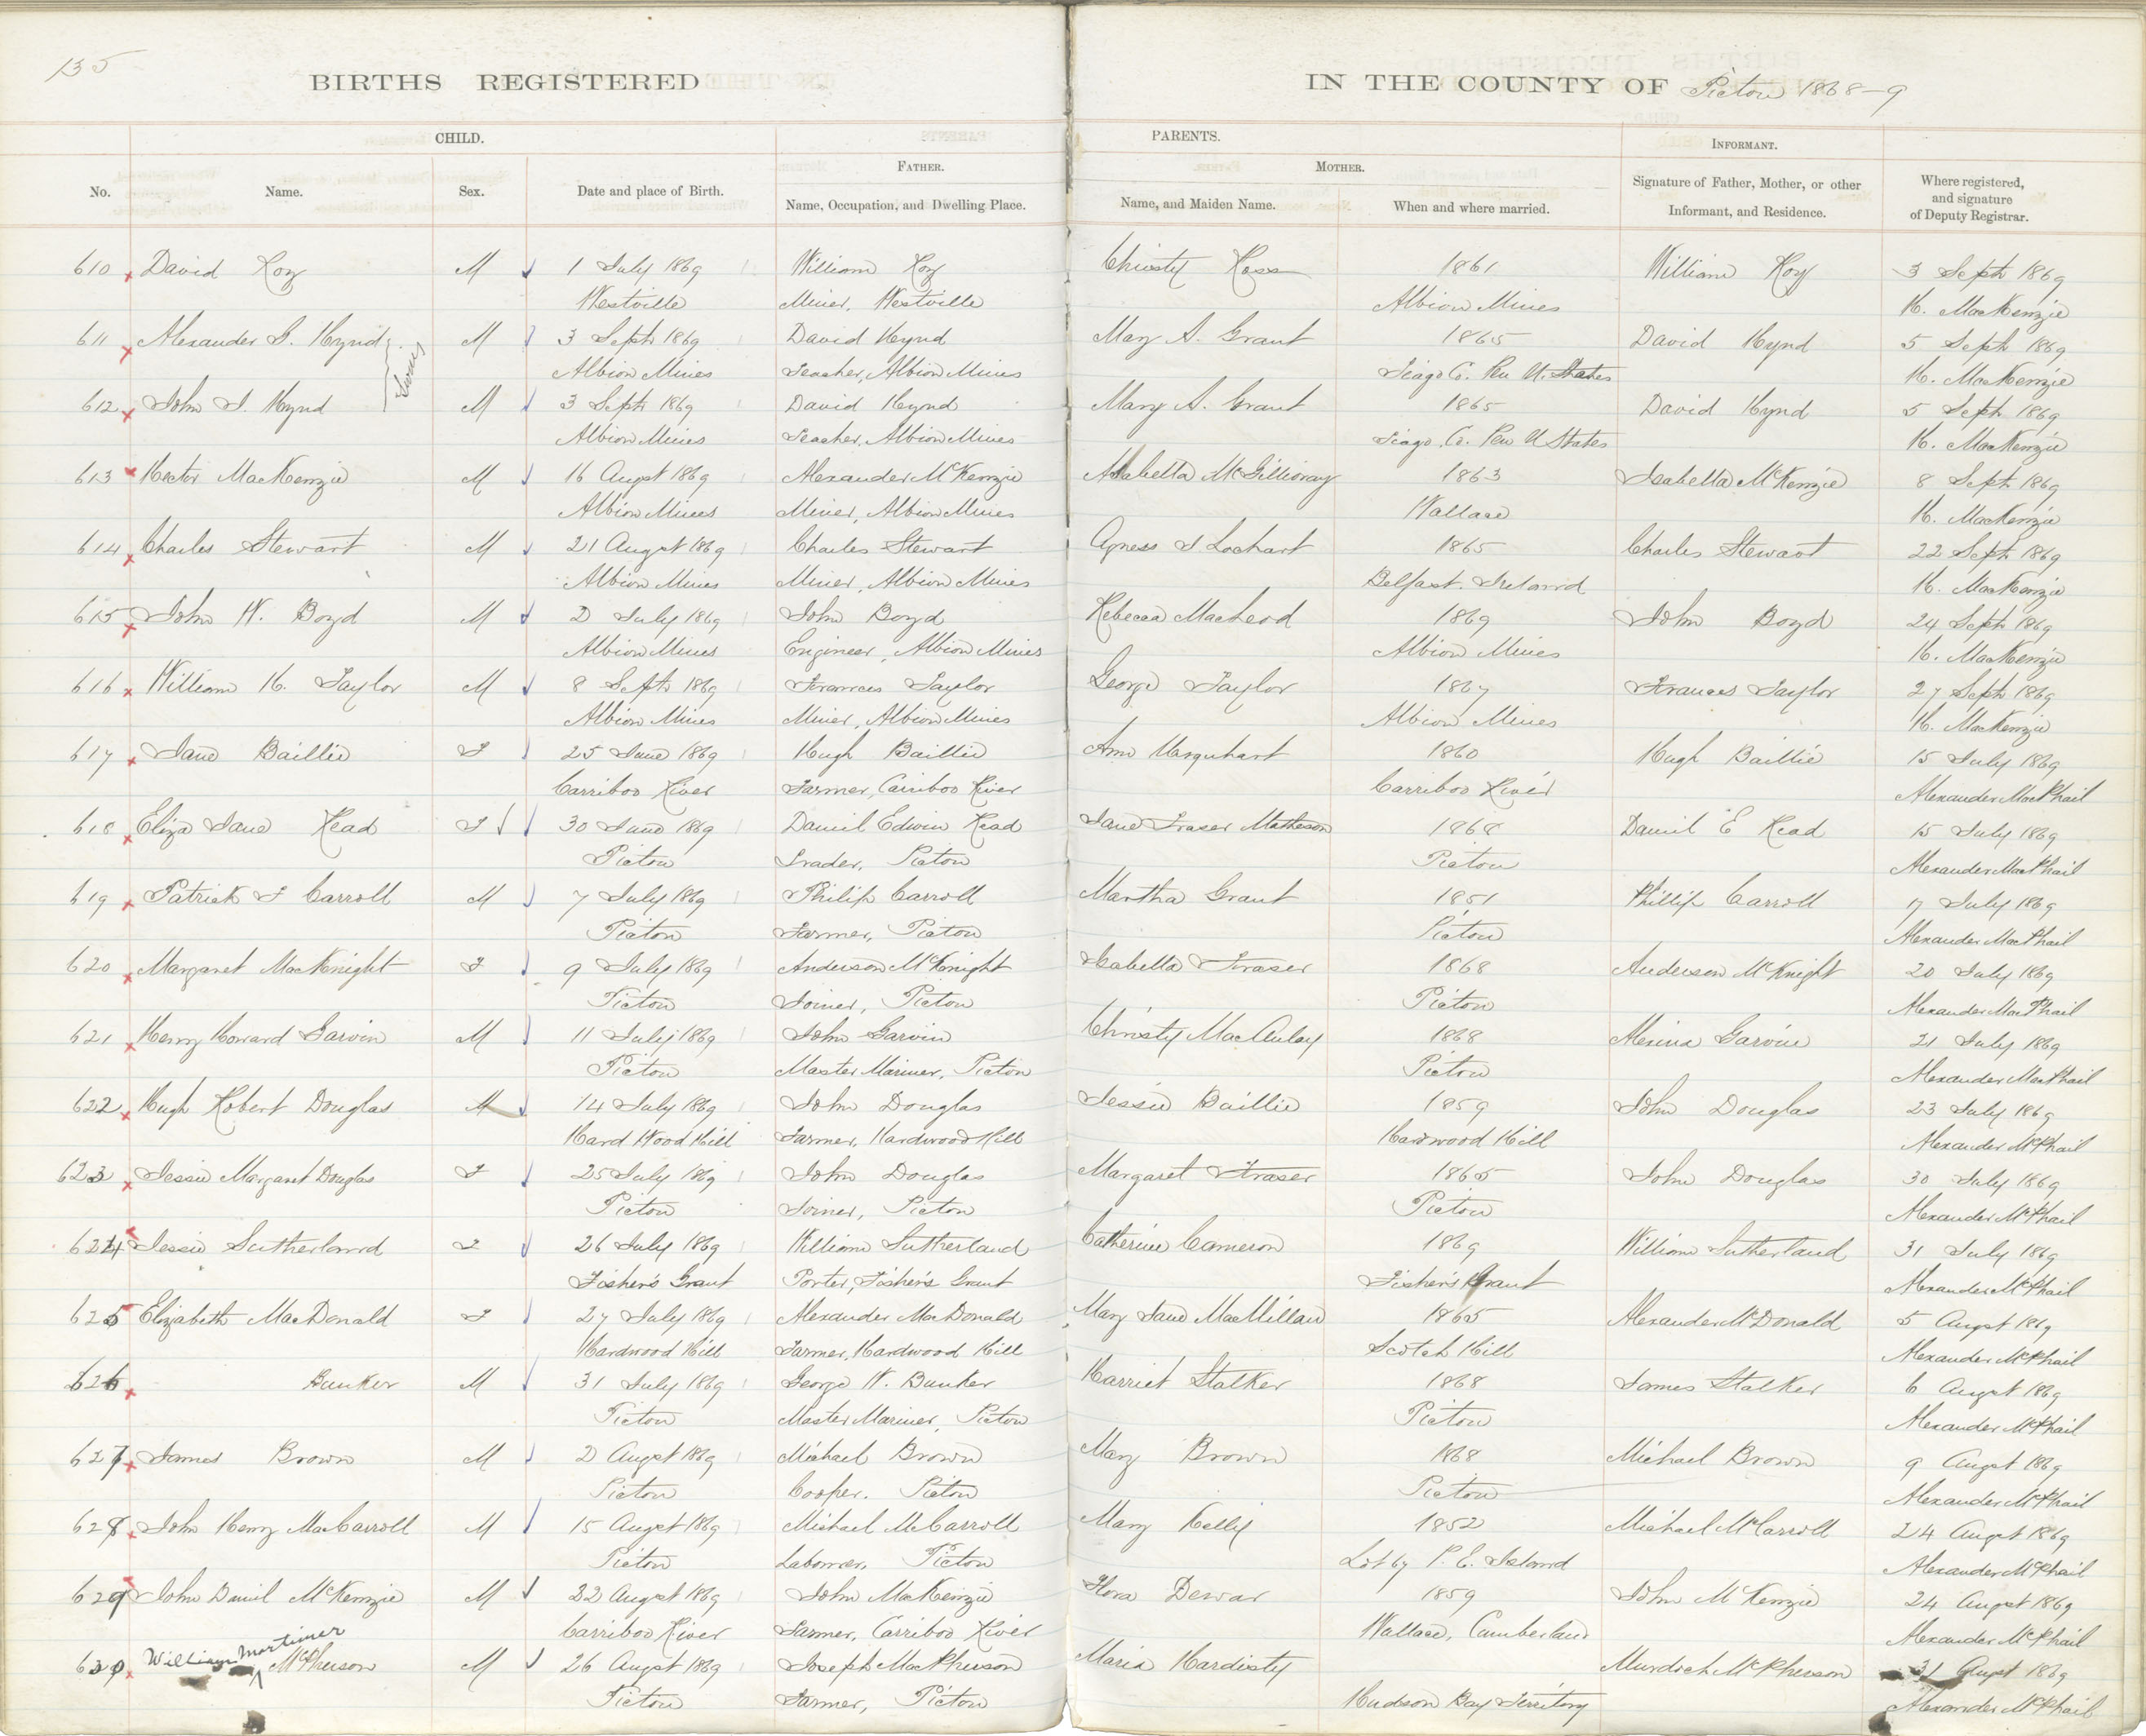 135
BIRTHS REGISTERED IN THE COUNTY OF Pictou 1868-9
CHILD. PARENTS. INFORMANT.
FATHER. MOTHER.
No. Name. Sex. Date and place of Birth. Name, Occupation, and Dwelling Place. Name, and Maiden Name. When and where married. Signature of Father, Mother, or other Informant, and Residence. Where registered, and signature of Deputy Registrar.
610 David Roy M 1 July 1869 William Roy Christy Ross 1861 William Roy 3 Sept 1869
Westville Miner, Westville Albion Mines H. MacKenzie
611 Alexander G. Hynd M 3 Sept 1869 David Hynd Mary A. Grant 1865 David Hynd 5 Sept 1869
Twins
Albion Mines Teacher, Albion Mines Tiago Co. Pen U. States H. MacKenzie
612 John I. Hynd M 3 Sept 1869 David Hynd Mary A. Grant 1865 David Hynd 5 Sept 1869
Albion Mines Teacher, Albion Mines Tiago Co. Pen U States H. MacKenzie
613 Hector MacKenzie M 16 Augst 1869 Alexander McKenzie Isabella McGillivray 1863 Isabella McKenzie 8 Sept 1869
Albion Mines Miner, Albion Mines Wallace H. MacKenzie
614 Charles Stewart M 21 Augst 1869 Charles Stewart Agness I Lochart 1865 Charles Stewart 22 Sept 1869
Albion Mines Miner, Albion Mines Belfast. Ireland H. MacKenzie
615 John W. Boyd M 2 July 1869 John Boyd Rebecca MacLeod 1869 John Boyd 24 Sept 1869
Albion Mines Engineer, Albion Mines Albion Mines H. MacKenzie
616 William H. Taylor M 8 Sept 1869 Frances Taylor George Taylor 1867 Frances Taylor 27 Sept 1869
Albion Mines Miner, Albion Mines Albion Mines H. MacKenzie
617 Jane Baillie F 25 June 1869 Hugh Baillie Ann Urquhart 1860 Hugh Baillie 15 July 1869
Carriboo River Farmer, Cariboo River Carriboo River Alexander MacPhail
618 Eliza Jane Read F 30 June 1869 Daniel Edwin Read Jane Fraser Matheson 1868 Daniel E Read 15 July 1869
Pictou Trader, Pictou Pictou Alexander MacPhail
619 Patrick F Carroll M 7 July 1869 Philip Carroll Martha Grant 1851 Phillip Carroll 17 July 1869
Pictou Farmer, Pictou Pictou Alexander MacPhail
620 Margaret MacKnight F 9 July 1869 Anderson McKnight Isabella Fraser 1868 Anderson McKnight 20 July 1869
Pictou Joiner, Pictou Pictou Alexander MacPhail
621 Henry Howard Garvin M 11 July 1869 John Garvin Christy MacAulay 1868 Garvin 21 July 1869
Pictou Master Mariner, Pictou Pictou Alexander MacPhail
622 Hugh Robert Douglas M 14 July 1869 John Douglas Jessie Baillie 1859 John Douglas 23 July 1869
Hard Wood Hill Farmer, Hardwood Hill Hardwood Hill Alexander McPhail
623 Jessie Margaret Douglas F 25 July 1869 John Douglas Margaret Fraser 1865 John Douglas 30 July 1869
Pictou Joiner, Pictou Pictou Alexander McPhail
624 Jessie Sutherland F 26 July 1869 William Sutherland Catherine Cameron 1869 William Sutherland 31 July 1869
Fisher's Grant Porter, Fisher's Grant Fisher's Grant Alexander McPhail
625 Elizabeth MacDonald F 27 July 1869 Alexander MacDonald Mary Jane MacMillan 1865 Alexander McDonald 5 Augst 1869
Hardwood Hill Farmer, Hardwood Hill Scotch Hill Alexander McPhail
626 Bunker M 31 July 1869 George W. Bunker Harriet Stalker 1868 James Stalker 6 Augst 1869
Pictou Master Mariner, Pictou Pictou Alexander McPhail
627 James Brown M 2 Augst 1869 Michael Brown Mary Brown 1868 Michael Brown 9 Augst 1869
Pictou Cooper. Pictou Pictou Alexander McPhail
628 John Henry MacCarroll M 15 Augst 1869 Michael McCarroll Mary Kelly 1852 Michael McCarroll 24 Augst 1869
Pictou Laborer, Pictou Lot 67 P. E. Island Alexander McPhail
629 John Daniel McKenzie M 22 Augst 1869 John MacKenzie Flora Dewar 1859 John McKenzie 24 Augst 1869
Carriboo River Farmer, Carriboo River Wallace, Cumberland Alexander McPhail
William Mortimer
630 McPherson M 26 Augst 1869 Joseph MacPherson Maria Hardisty Murdoch McPherson 31 Augst 1869
Pictou Farmer, Pictou Hudson Bay Territory Alexander McPhail